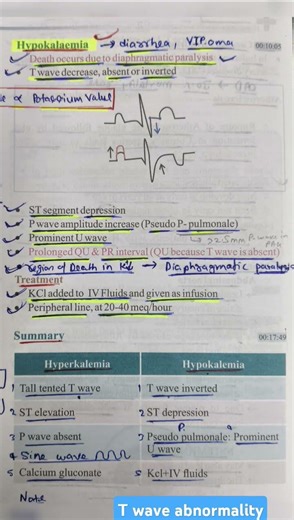 Hypokalaemia → diarrhea, VIPoma 00:10:05
Death occurs due to diaphragmatic paralysis.
T wave decrease, absent or inverted
∝ Potassium Value
ST segment depression
P wave amplitude increase (Pseudo P- pulmonale)
Prominent U wave → >2.5mm P wave in
Prolonged QU & PR interval (QU because T wave is absent)
Region of Death in K↓ → Diaphragmatic paralysis
Treatment
KCl added to IV Fluids and given as infusion
Peripheral line, at 20-40 meq/hour
Summary 00:17:49
Hyperkalemia Hypokalemia
1 Tall tented T wave 1 T wave inverted
2 ST elevation 2 ST depression
3 P wave absent 3 Pseudo P. pulmonale: Prominent
U wave
4 Sine wave
5 Calcium gluconate 5 Kcl+IV fluids
Note
T wave abnormality